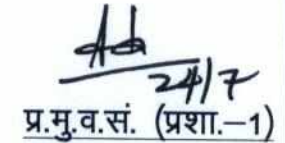 24/7
प्र.मु.व.सं. (प्रशा.–1)